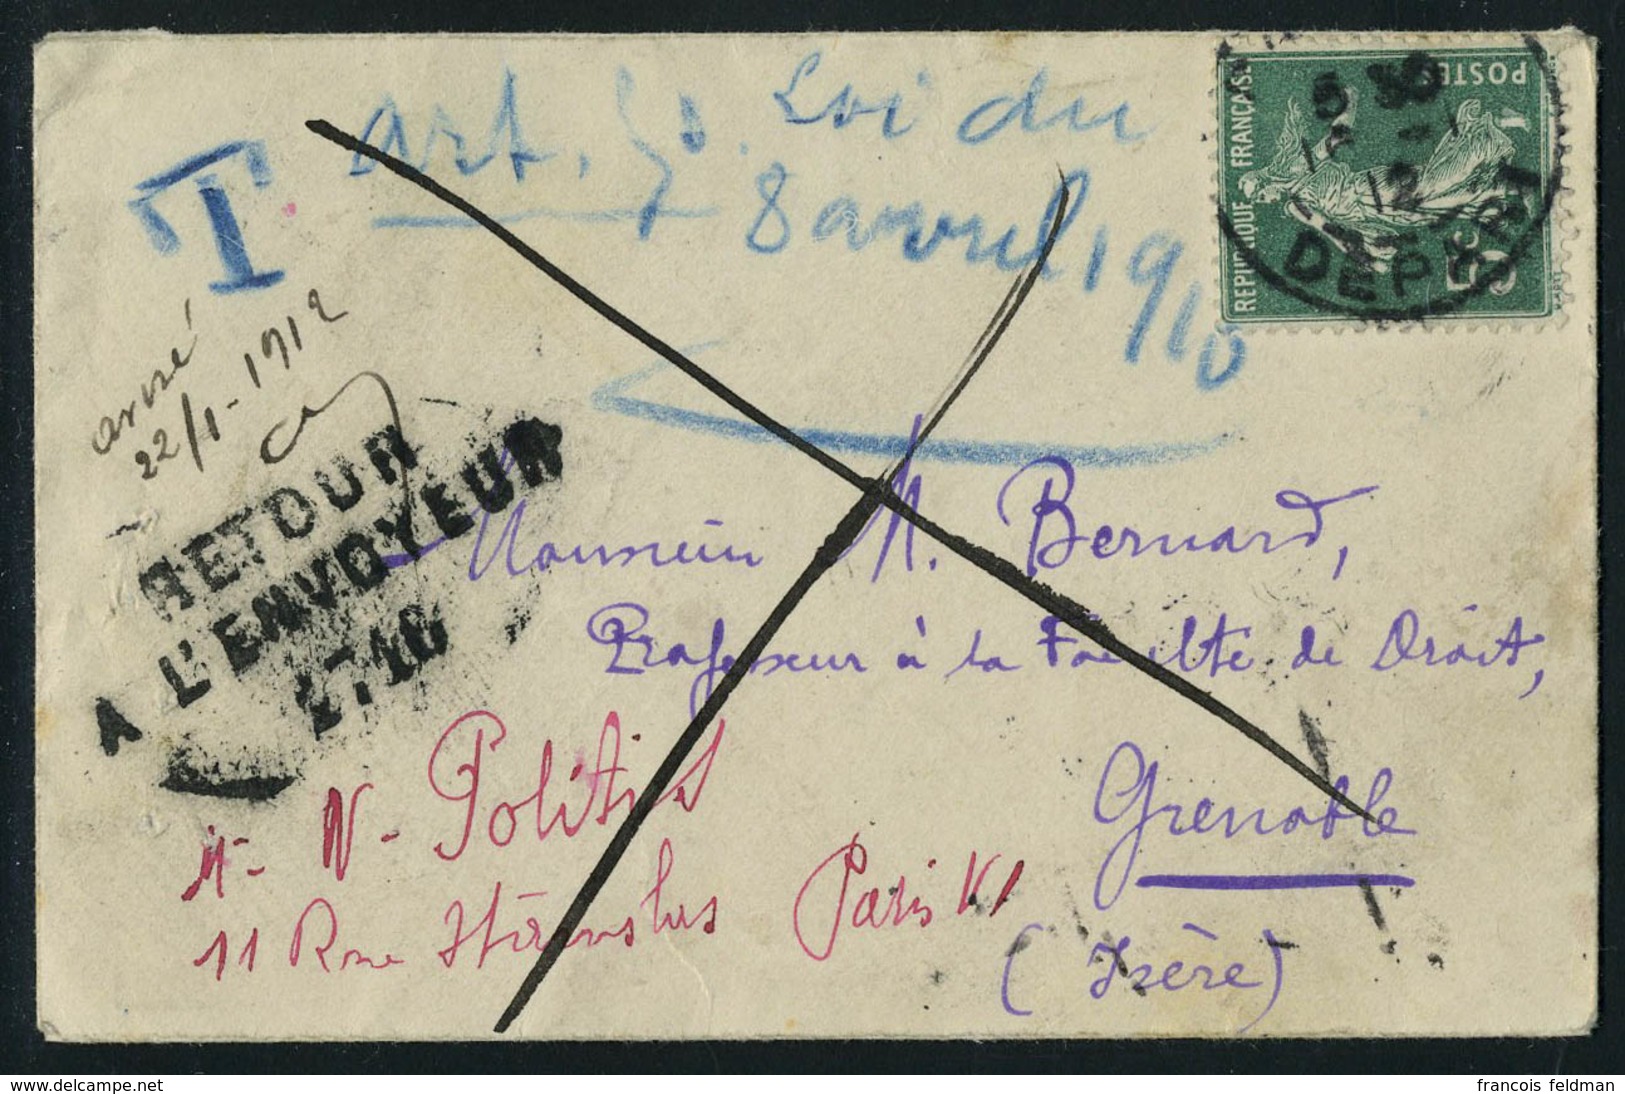 T
art. 50. Loi du
8 avril 1910
arrivé
22/1-1912
RETOUR
A L'ENVOYEUR
2710
POSTES
REPUBIQUE FRANÇAISE
5c
5 30
12
DEPART
Monsieur M. Bernard,
Professeur à la Faculté de Droit,
Grenoble
(Isère)
M- N- Politis
11 Rue Stanislas Paris VI
www.delcampe.net
francois feldman